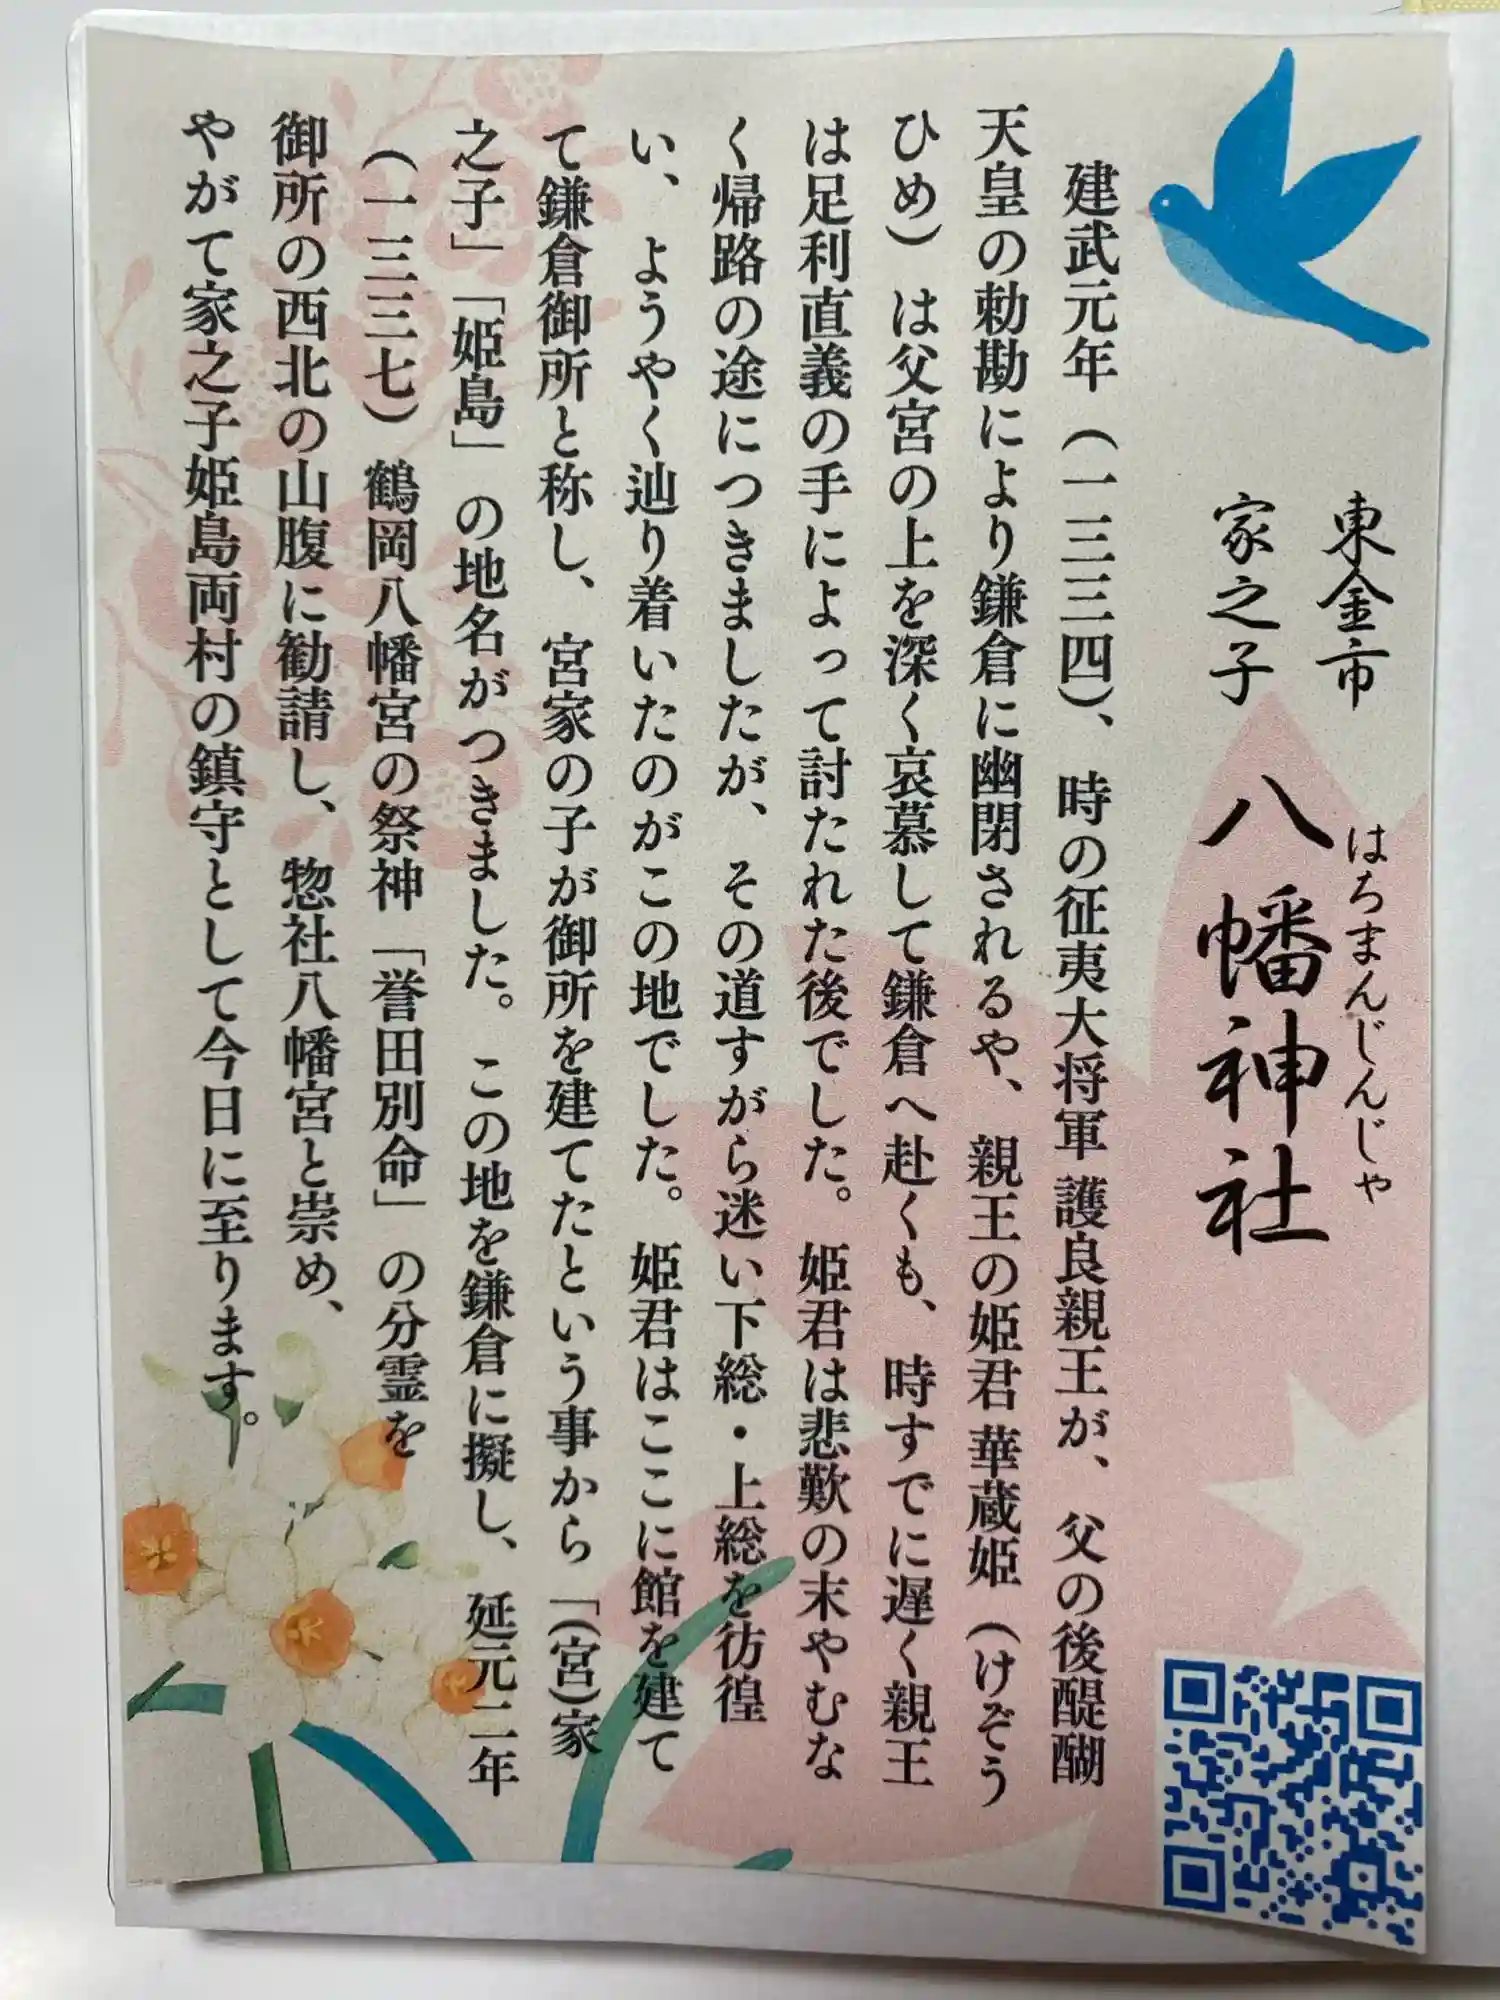 東金市
家之子
八幡神社
はちまんじんじゃ
建武元年(一三三四)、時の征夷大将軍 護良親王が、父の後醍醐
天皇の勅勘により鎌倉に幽閉されるや、親王の姫君 華蔵姫(けぞう
ひめ)は父宮の上を深く哀慕して鎌倉へ赴くも、時すでに遅く親王
は足利直義の手によって討たれた後でした。姫君は悲歎の末やむな
く帰路の途につきましたが、その道すがら迷い下総・上総を彷徨
い、ようやく辿り着いたのがこの地でした。姫君はここに館を建て
て鎌倉御所と称し、宮家の子が御所を建てたという事から「(宮)家
之子」「姫島」の地名がつきました。この地を鎌倉に擬し、延元二年
(一三三七)鶴岡八幡宮の祭神「誉田別命」の分霊を
御所の西北の山腹に勧請し、惣社八幡宮と崇め、
やがて家之子姫島両村の鎮守として今日に至ります。